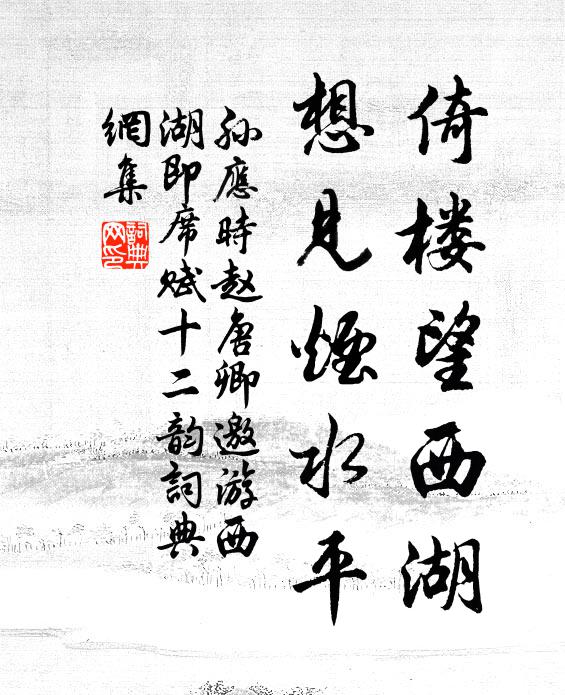 倚楼望西湖
想见煙水平
孙應時赵唐卿邀游西
湖即席赋十二韵詞典
網集
詞典
网印